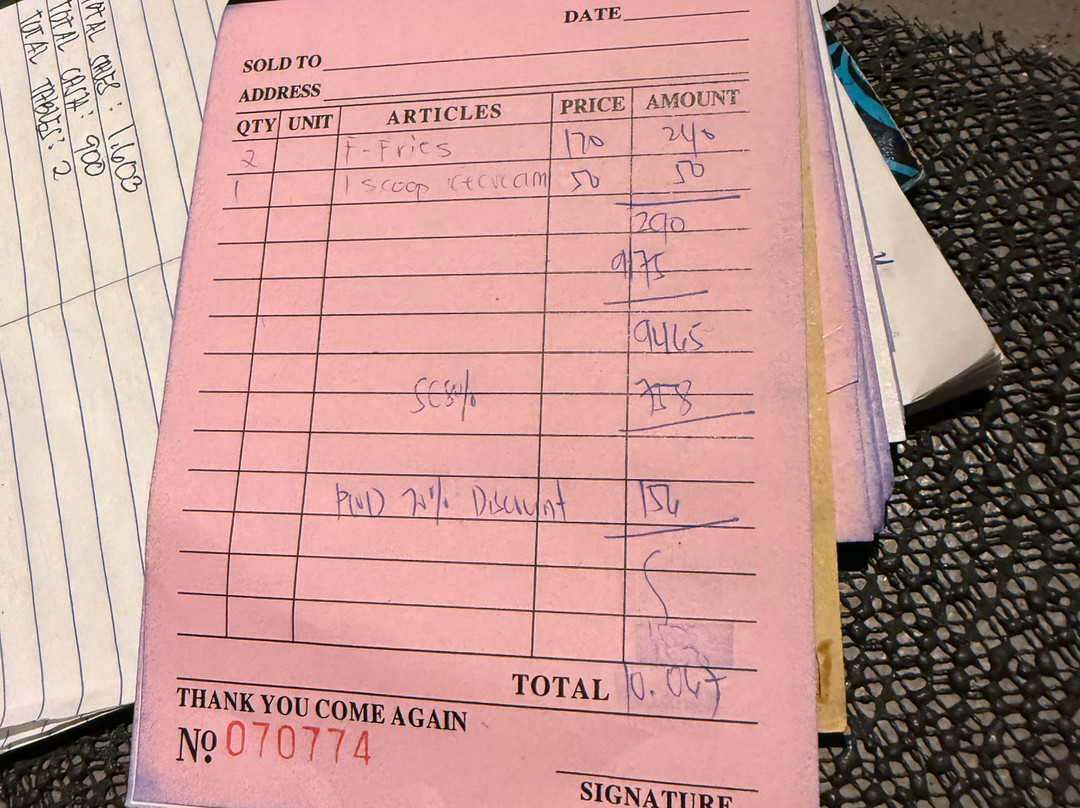 TOTAL SALES: 1,603
TOTAL CASH: 900
TOTAL TABLES: 2
DATE
SOLD TO
ADDRESS
QTY UNIT ARTICLES PRICE AMOUNT
2 F-Fries 120 240
1 1 scoop icecream 50 50
290
9175
9465
SC8% 758
PWD 20% Discount 156
TOTAL 10.067
THANK YOU COME AGAIN
No 070774
SIGNATURE